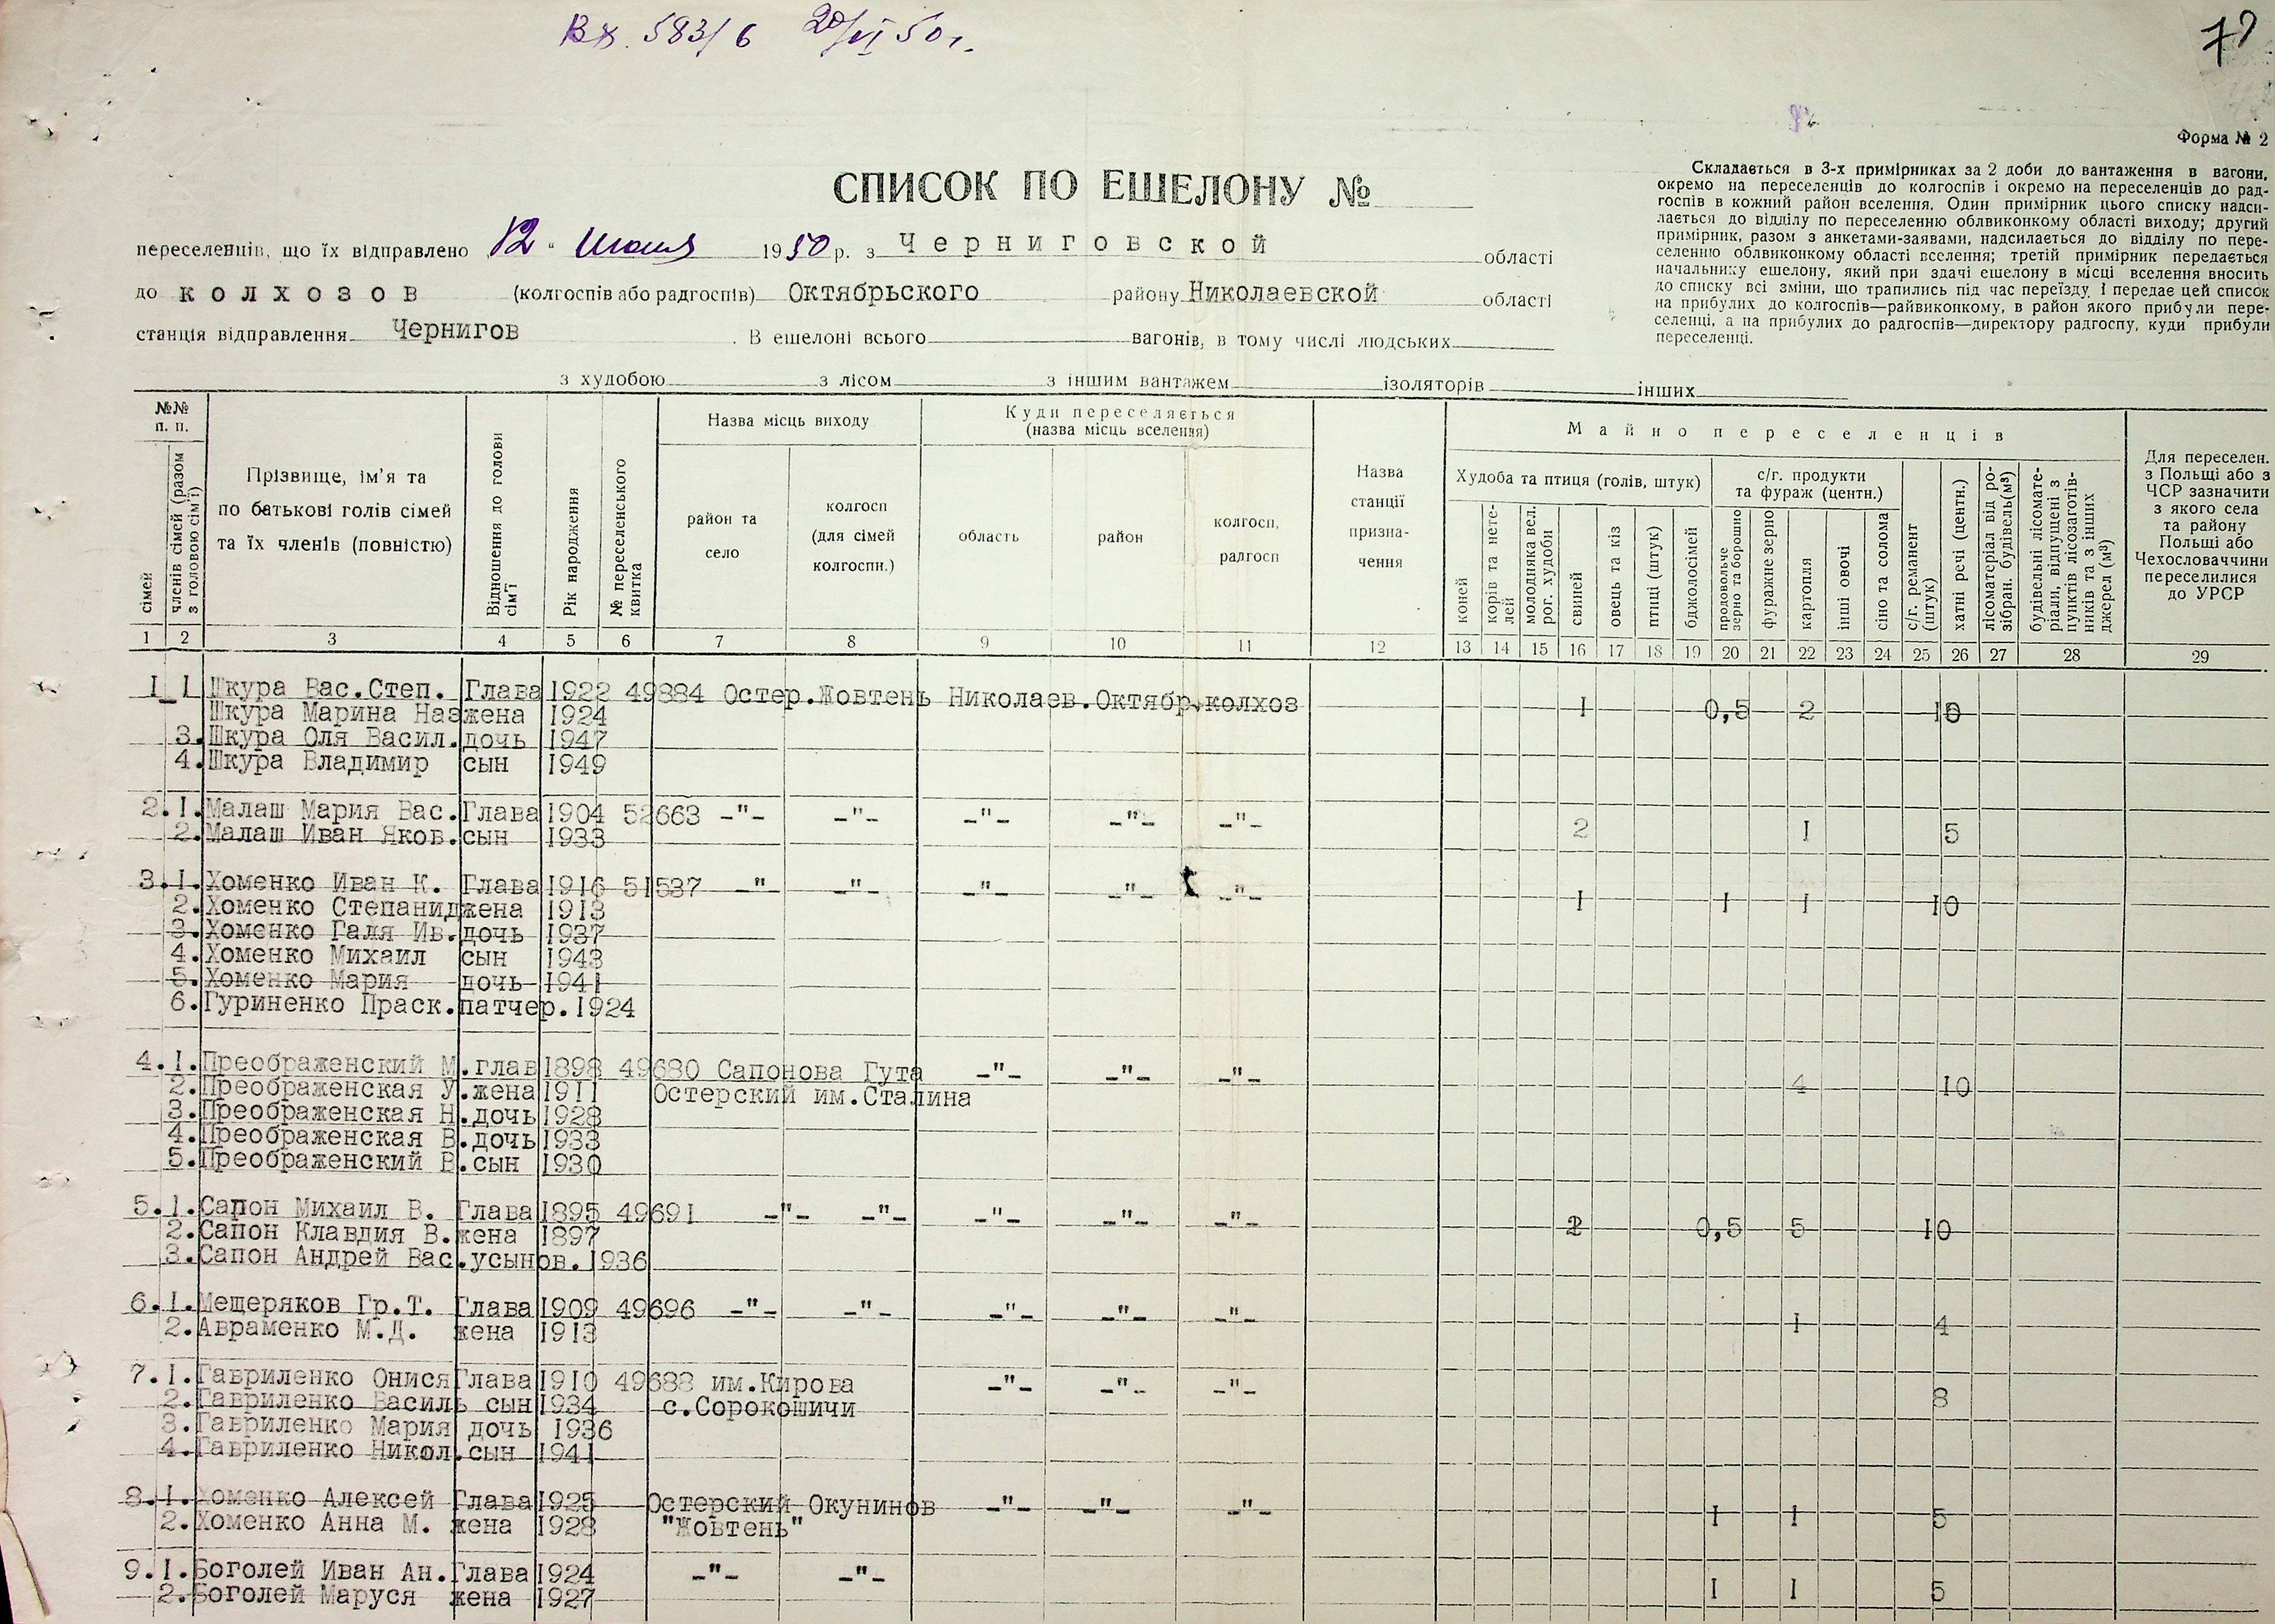 Вх. 583/6 20/VI 50 г.
Форма № 2
СПИСОК ПО ЕШЕЛОНУ №
Складається в 3-х примірниках за 2 доби до вантаження в вагони,
окремо на переселенців до колгоспів і окремо на переселенців до рад-
госпів в кожний район вселення. Один примірник цього списку надси-
лається до відділу по переселенню облвиконкому області виходу; другий
примірник, разом з анкетами-заявами, надсилається до відділу по пере-
селенню облвиконкому області вселення; третій примірник передається
начальнику ешелону, який при здачі ешелону в місці вселення вносить
до списку всі зміни, що трапились під час переїзду і передає цей список
на прибулих до колгоспів—райвиконкому, в район якого прибули пере-
селенці, а на прибулих до радгоспів—директору радгоспу, куди прибули
переселенці.
переселенців, що їх відправлено 12 " июня 1950 р. з Черниговской області
до колхозов (колгоспів або радгоспів) Октябрьского району Николаевской області
станція відправлення Чернигов. В ешелоні всього вагонів, в тому числі людських
з худобою з лісом з іншим вантажем ізоляторів інших
№№ п. п.
сімей
членів сімей (разом з головою сім'ї)
Прізвище, ім'я та
по батькові голів сімей
та їх членів (повністю)
Відношення до голови сім'ї
Рік народження
№ переселенського квитка
Назва місць виходу
район та село
колгосп
(для сімей
колгоспн.)
Куди переселяється
(назва місць вселення)
область
район
колгосп,
радгосп
Назва
станції
призна-
чення
Майно переселенців
Худоба та птиця (голів, штук)
коней
корів та нете-
лей
молодняка вел.
рог. худоби
свиней
овець та кіз
птиці (штук)
бджолосімей
с/г. продукти
та фураж (центн.)
продовольче
зерно та борошно
фуражне зерно
картопля
інші овочі
сіно та солома
с/г. реманент
(штук)
хатні речі (центн.)
лісоматеріал від ро-
зібран. будівель (м³)
будівельні лісомате-
ріали, відпущені з
пунктів лісозаготів-
ників та з інших
джерел (м³)
Для переселен.
з Польщі або з
ЧСР зазначити
з якого села
та району
Польщі або
Чехословаччини
переселилися
до УРСР
1 2 3 4 5 6 7 8 9 10 11 12 13 14 15 16 17 18 19 20 21 22 23 24 25 26 27 28 29
1 1 Шкура Вас.Степ. Глава 1922 49884 Остер.Жовтень Николаев.Октябр.колхоз 1 0,5 2
Шкура Марина Наз жена 1924
3. Шкура Оля Васил. дочь 1947
4. Шкура Владимир сын 1949
2. 1. Малаш Мария Вас. Глава 1904 52663 -"- -"- -"- -"- -"- 2 1 5
2. Малаш Иван Яков. сын 1933
3. 1. Хоменко Иван К. Глава 1916 51537 -"- -"- -"- -"- -"- 1 1 1 10
2. Хоменко Степанид жена 1913
3. Хоменко Галя Ив. дочь 1937
4. Хоменко Михаил сын 1943
5. Хоменко Мария дочь 1941
6. Гуриненко Праск. патчер. 1924
4. 1. Преображенский М. глав 1898 49680 Сапонова Гута -"- -"- -"- 4 10
2. Преображенская У. жена 1911 Остерский им.Сталина
3. Преображенская Н. дочь 1928
4. Преображенская В. дочь 1933
5. Преображенский В. сын 1930
5. 1. Сапон Михаил В. Глава 1895 49691 -"- -"- -"- -"- -"- 2 0,5 5 10
2. Сапон Клавдия В. жена 1897
3. Сапон Андрей Вас. усынов. 1936
6. 1. Мещеряков Гр.Т. Глава 1909 49696 -"- -"- -"- -"- -"- 1 4
2. Авраменко М.Д. жена 1913
7. 1. Гавриленко Онися Глава 1910 49688 им.Кирова -"- -"- -"- 8
2. Гавриленко Василь сын 1934 с.Сорокошичи
3. Гавриленко Мария дочь 1936
4. Гавриленко Никол. сын 1941
8. 1. Хоменко Алексей Глава 1925 Остерский Окунинов -"- -"- -"- 1 1 5
2. Хоменко Анна М. жена 1928 "Жовтень"
9. 1. Боголей Иван Ан. Глава 1924 -"- -"- 1 1 5
2. Боголей Маруся жена 1927